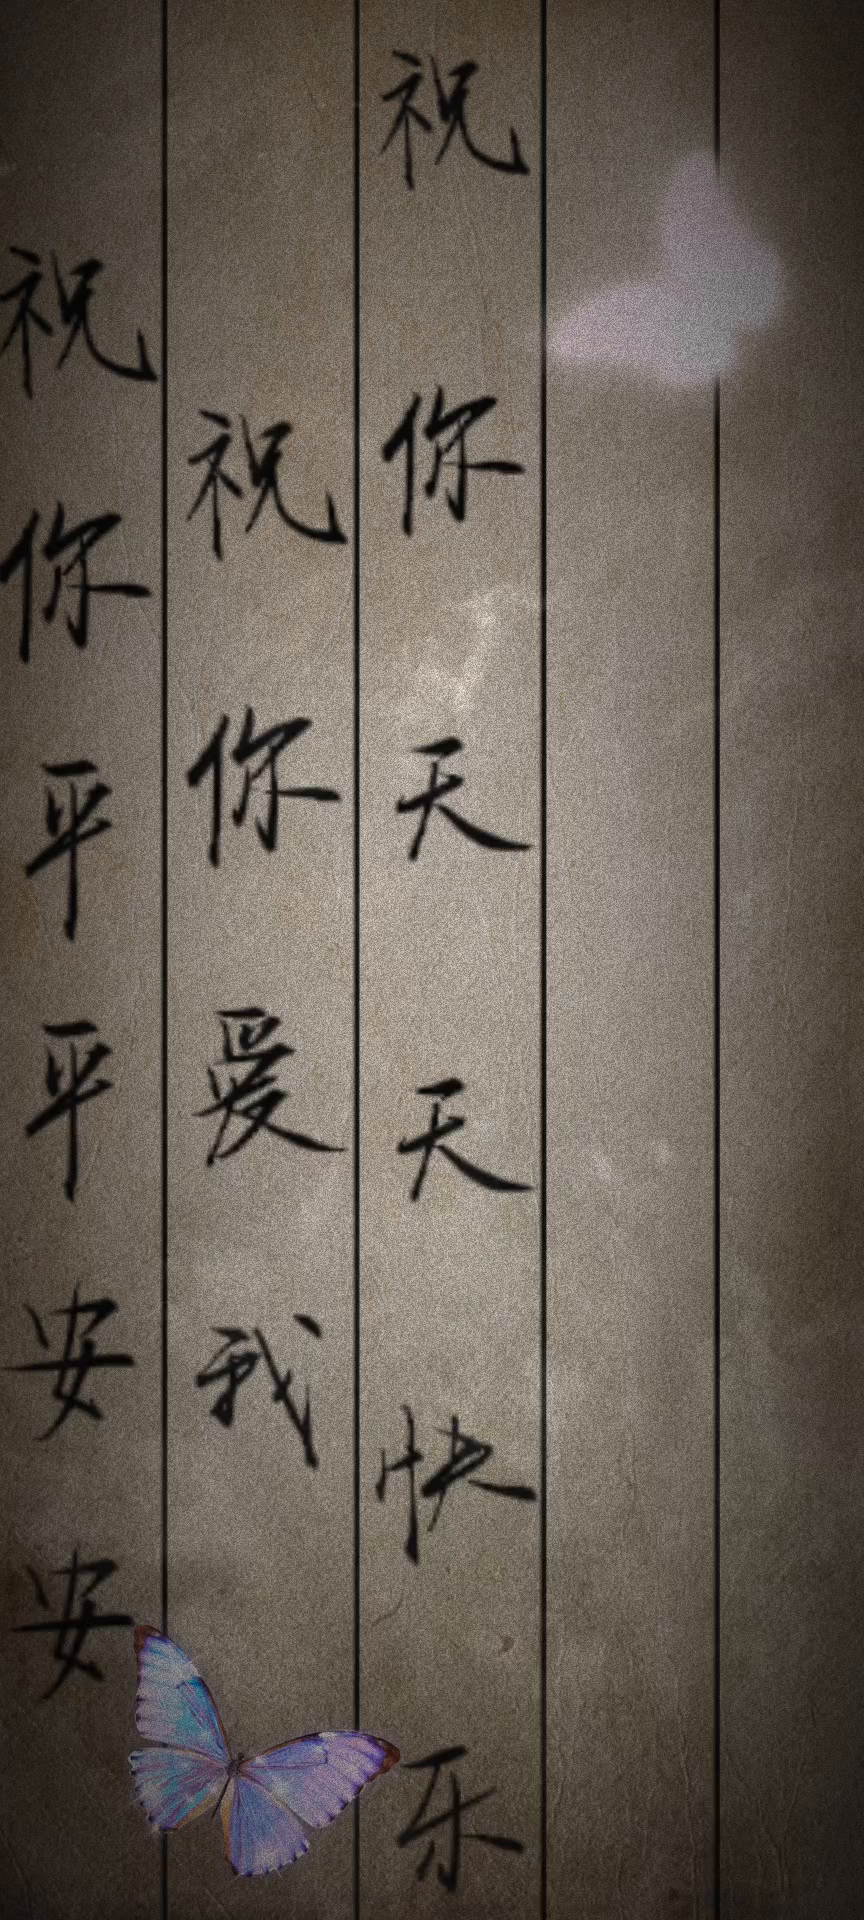 祝你天天快乐
祝你爱我
祝你平平安安